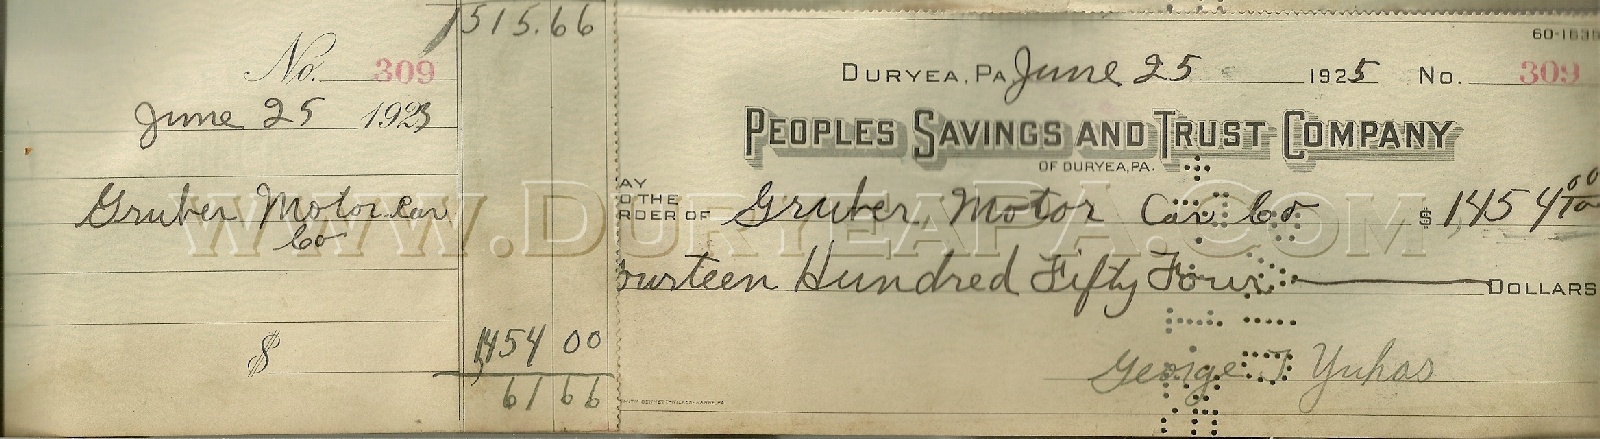 1515.66
No. 309
June 25 1923
Gruber Motor Car
Co
$ 1454 00
61 66
60-1835
DURYEA, PA. June 25 1925 No. 309
PEOPLES SAVINGS AND TRUST COMPANY
OF DURYEA, PA.
AY
O THE
RDER OF Gruber Motor Car Co $ 1454 00/100
ourteen Hundred Fifty Four DOLLARS
George J Yuhas
WWW.DURYEAPA.COM